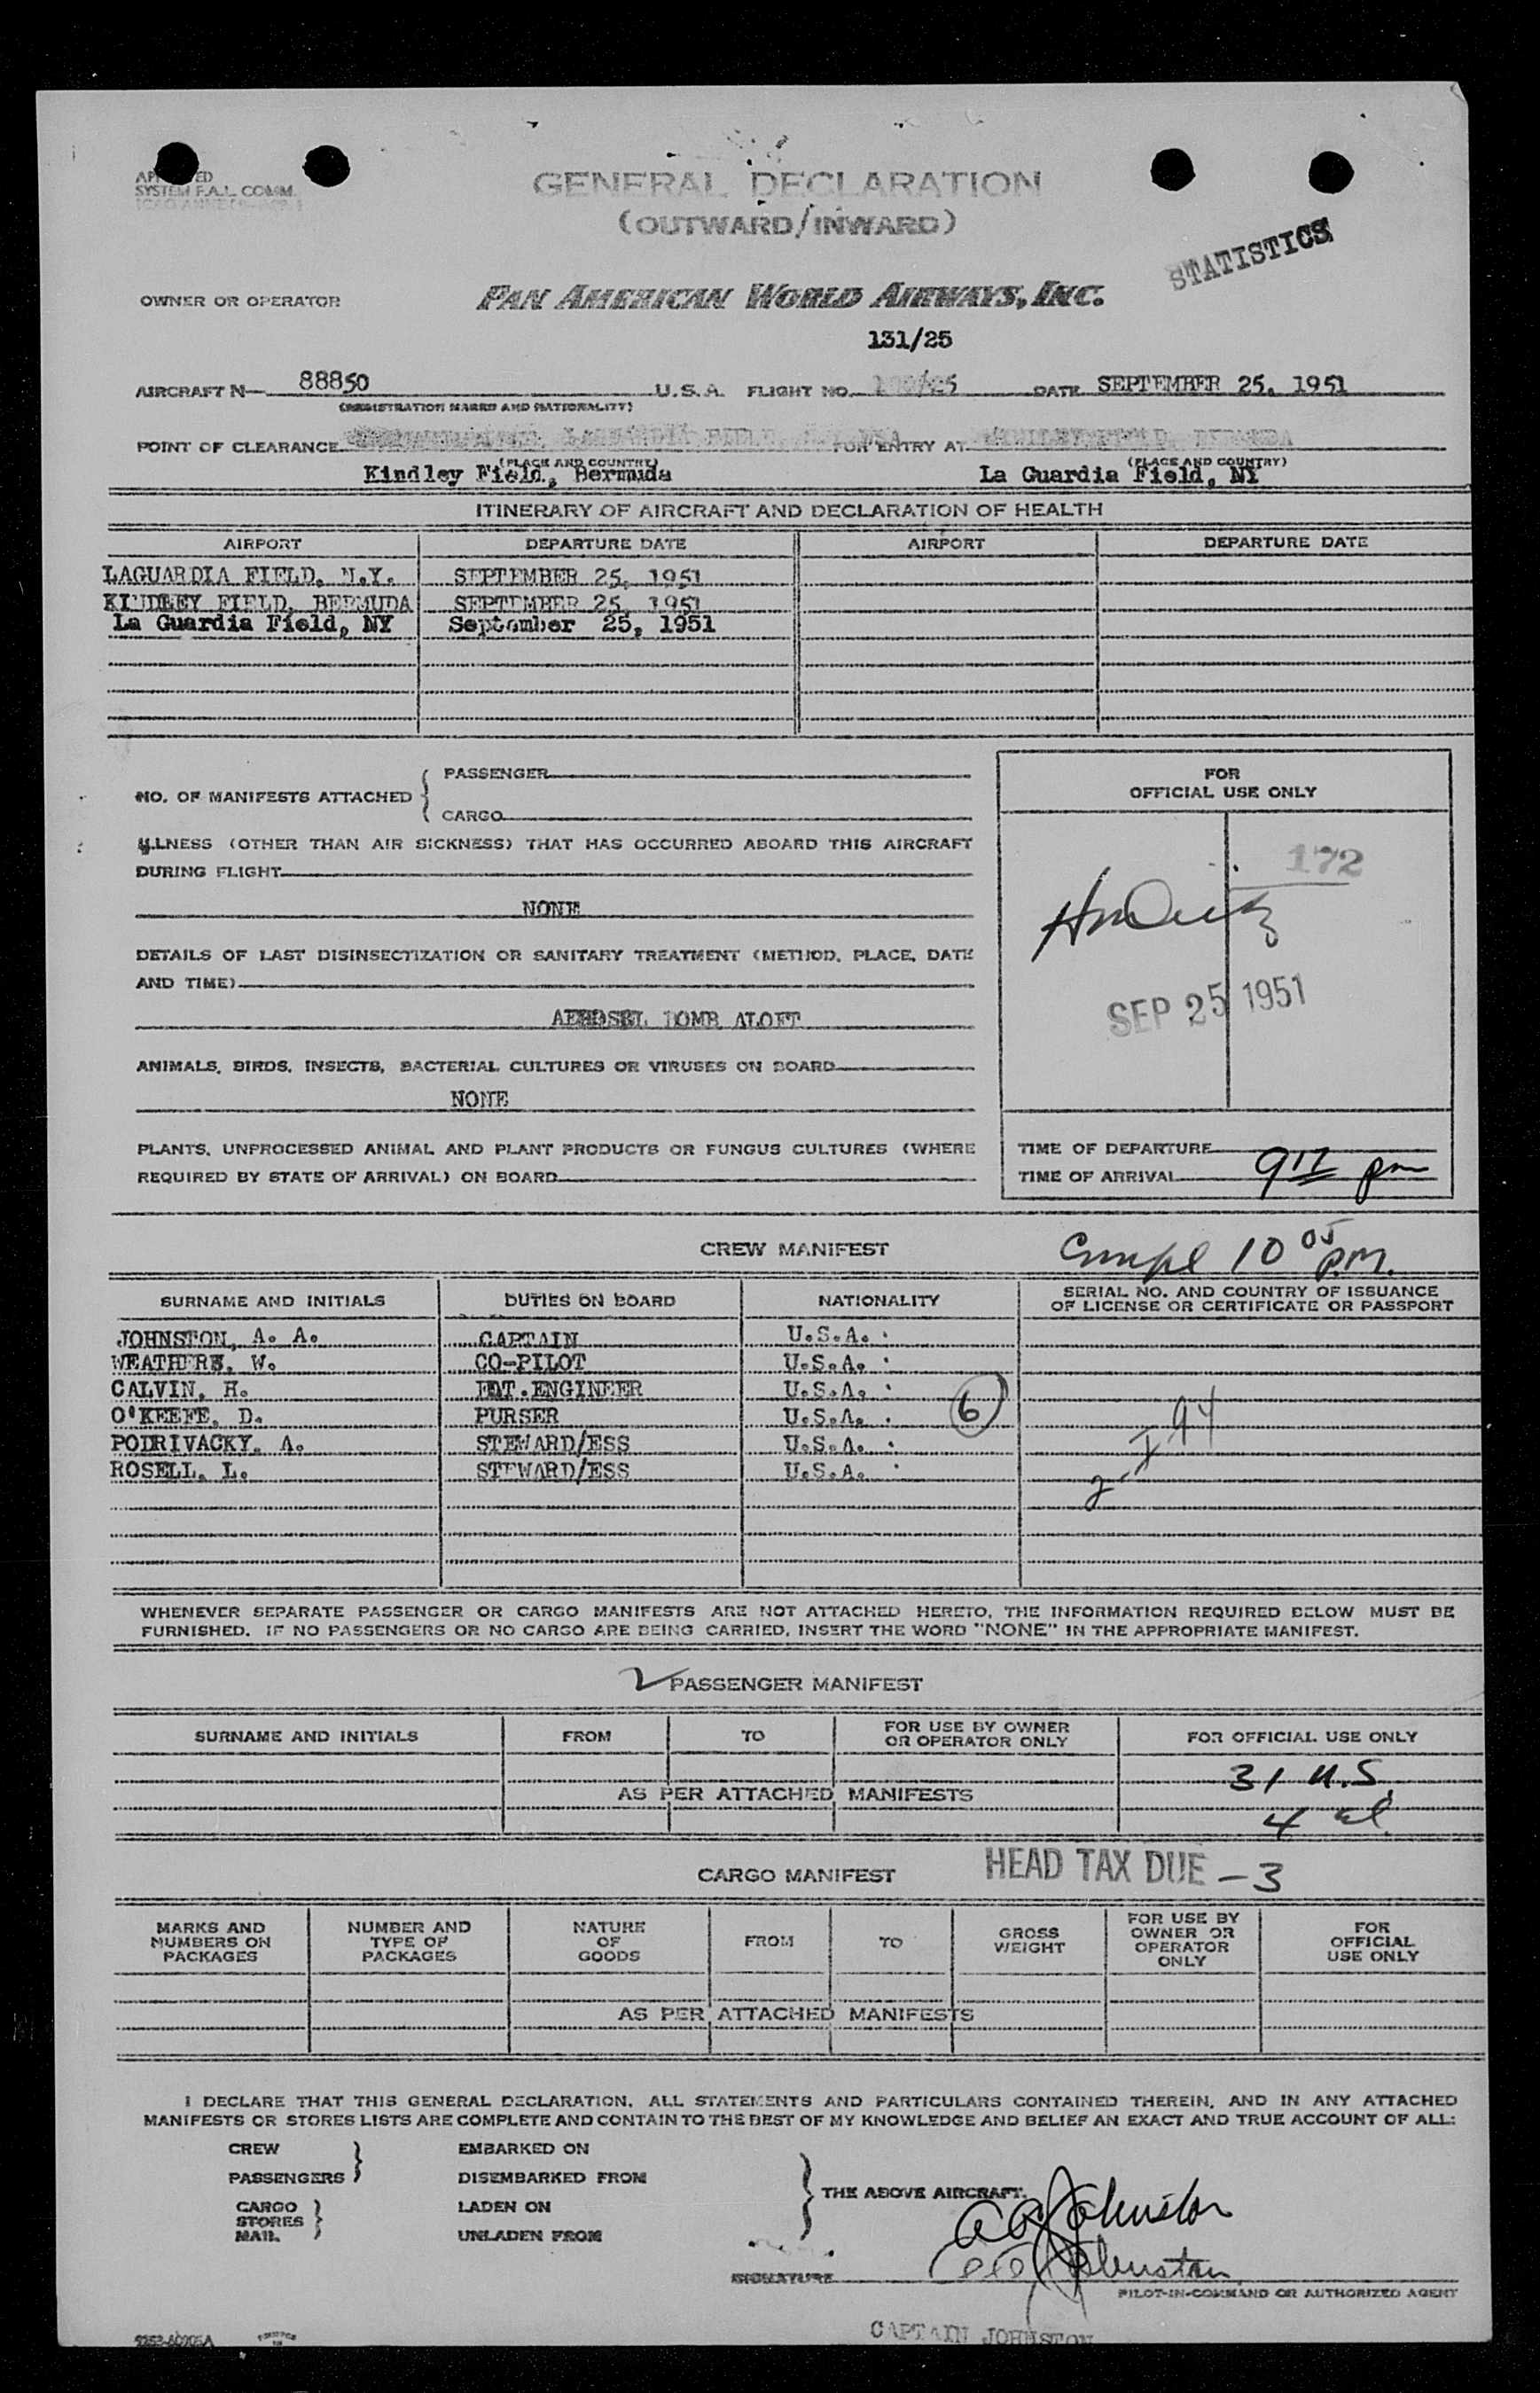 SYSTEM F.A.L. COMM.
GENERAL DECLARATION
(OUTWARD/INWARD)
STATISTICS
OWNER OR OPERATOR PAN AMERICAN WORLD AIRWAYS, INC.
131/25
AIRCRAFT N— 88850 U.S.A. FLIGHT NO. /25 DATE SEPTEMBER 25, 1951
(REGISTRATION MARKS AND NATIONALITY)
POINT OF CLEARANCE LAGUARDIA FIELD, FOR ENTRY AT KINDLEY FIELD, BERMUDA
(PLACE AND COUNTRY) (PLACE AND COUNTRY)
Kindley Field, Bermuda La Guardia Field, NY
ITINERARY OF AIRCRAFT AND DECLARATION OF HEALTH
AIRPORT DEPARTURE DATE AIRPORT DEPARTURE DATE
LAGUARDIA FIELD, N.Y. SEPTEMBER 25, 1951
KINDLEY FIELD, BERMUDA SEPTEMBER 25, 1951
La Guardia Field, NY September 25, 1951
NO. OF MANIFESTS ATTACHED { PASSENGER
CARGO
ILLNESS (OTHER THAN AIR SICKNESS) THAT HAS OCCURRED ABOARD THIS AIRCRAFT
DURING FLIGHT
NONE
DETAILS OF LAST DISINSECTIZATION OR SANITARY TREATMENT (METHOD, PLACE, DATE
AND TIME)
AEROSEL BOMB ALOFT
ANIMALS, BIRDS, INSECTS, BACTERIAL CULTURES OR VIRUSES ON BOARD
NONE
PLANTS, UNPROCESSED ANIMAL AND PLANT PRODUCTS OR FUNGUS CULTURES (WHERE
REQUIRED BY STATE OF ARRIVAL) ON BOARD
FOR
OFFICIAL USE ONLY
172
SEP 25 1951
TIME OF DEPARTURE
TIME OF ARRIVAL 9 17 pm
CREW MANIFEST Compl 10 05 P.M.
SURNAME AND INITIALS DUTIES ON BOARD NATIONALITY SERIAL NO. AND COUNTRY OF ISSUANCE
OF LICENSE OR CERTIFICATE OR PASSPORT
JOHNSTON, A. A. CAPTAIN U.S.A.
WEATHERS, W. CO-PILOT U.S.A.
CALVIN, H. FLT.ENGINEER U.S.A.
O'KEEFE, D. PURSER U.S.A. 6
PODRIVACKY, A. STEWARD/ESS U.S.A.
ROSELL, L. STEWARD/ESS U.S.A.
WHENEVER SEPARATE PASSENGER OR CARGO MANIFESTS ARE NOT ATTACHED HERETO, THE INFORMATION REQUIRED BELOW MUST BE
FURNISHED. IF NO PASSENGERS OR NO CARGO ARE BEING CARRIED, INSERT THE WORD "NONE" IN THE APPROPRIATE MANIFEST.
PASSENGER MANIFEST
SURNAME AND INITIALS FROM TO FOR USE BY OWNER
OR OPERATOR ONLY FOR OFFICIAL USE ONLY
31 U.S.
AS PER ATTACHED MANIFESTS
4 al.
CARGO MANIFEST HEAD TAX DUE – 3
MARKS AND
NUMBERS ON
PACKAGES
NUMBER AND
TYPE OF
PACKAGES
NATURE
OF
GOODS
FROM
TO
GROSS
WEIGHT
FOR USE BY
OWNER OR
OPERATOR
ONLY
FOR
OFFICIAL
USE ONLY
AS PER ATTACHED MANIFESTS
I DECLARE THAT THIS GENERAL DECLARATION, ALL STATEMENTS AND PARTICULARS CONTAINED THEREIN, AND IN ANY ATTACHED
MANIFESTS OR STORES LISTS ARE COMPLETE AND CONTAIN TO THE BEST OF MY KNOWLEDGE AND BELIEF AN EXACT AND TRUE ACCOUNT OF ALL:
CREW } EMBARKED ON
PASSENGERS DISEMBARKED FROM } THE ABOVE AIRCRAFT.
CARGO } LADEN ON
STORES
MAIL UNLADEN FROM
A A Johnston
Johnston
SIGNATURE
PILOT-IN-COMMAND OR AUTHORIZED AGENT
CAPTAIN JOHNSTON